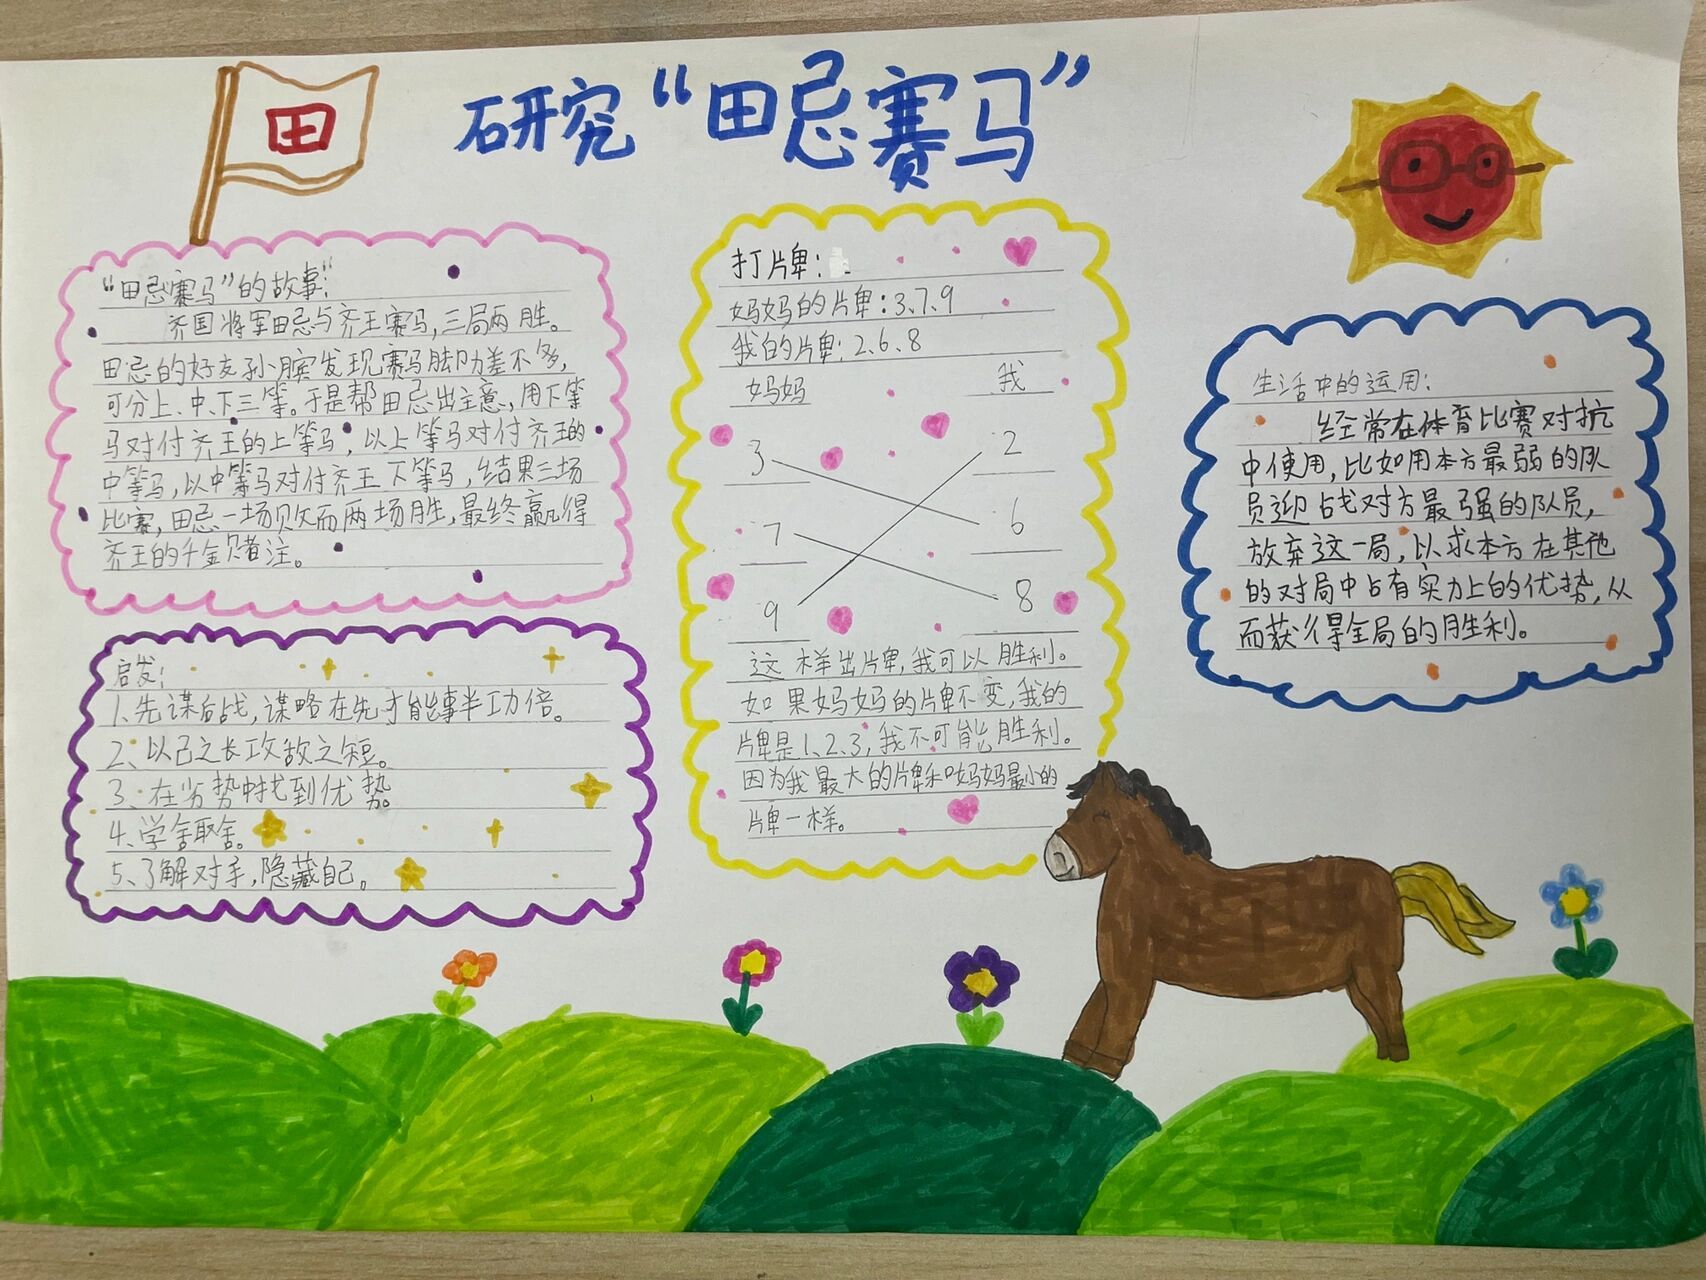 田
研究“田忌赛马”
“田忌赛马”的故事:
齐国将军田忌与齐王赛马,三局两胜。
田忌的好友孙膑发现赛马脚力差不多,
可分上、中、下三等。于是帮田忌出主意,用下等
马对付齐王的上等马,以上等马对付齐王的
中等马,以中等马对付齐王下等马,结果三场
比赛,田忌一场败而两场胜,最终赢得
齐王的千金赌注。
启发:
1、先谋后战,谋略在先才能事半功倍。
2、以己之长攻敌之短。
3、在劣势中找到优势。
4、学舍取舍。
5、了解对手,隐藏自己。
打牌:
妈妈的牌:3、7、9
我的牌:2、6、8
妈妈 我
3 2
7 6
9 8
这样出牌,我可以胜利。
如果妈妈的牌不变,我的
牌是1、2、3,我不可能胜利。
因为我最大的牌和妈妈最小的
牌一样。
生活中的运用:
经常在体育比赛对抗
中使用,比如用本方最弱的队
员迎战对方最强的队员,
放弃这一局,以求本方在其他
的对局中占有实力上的优势,从
而获得全局的胜利。